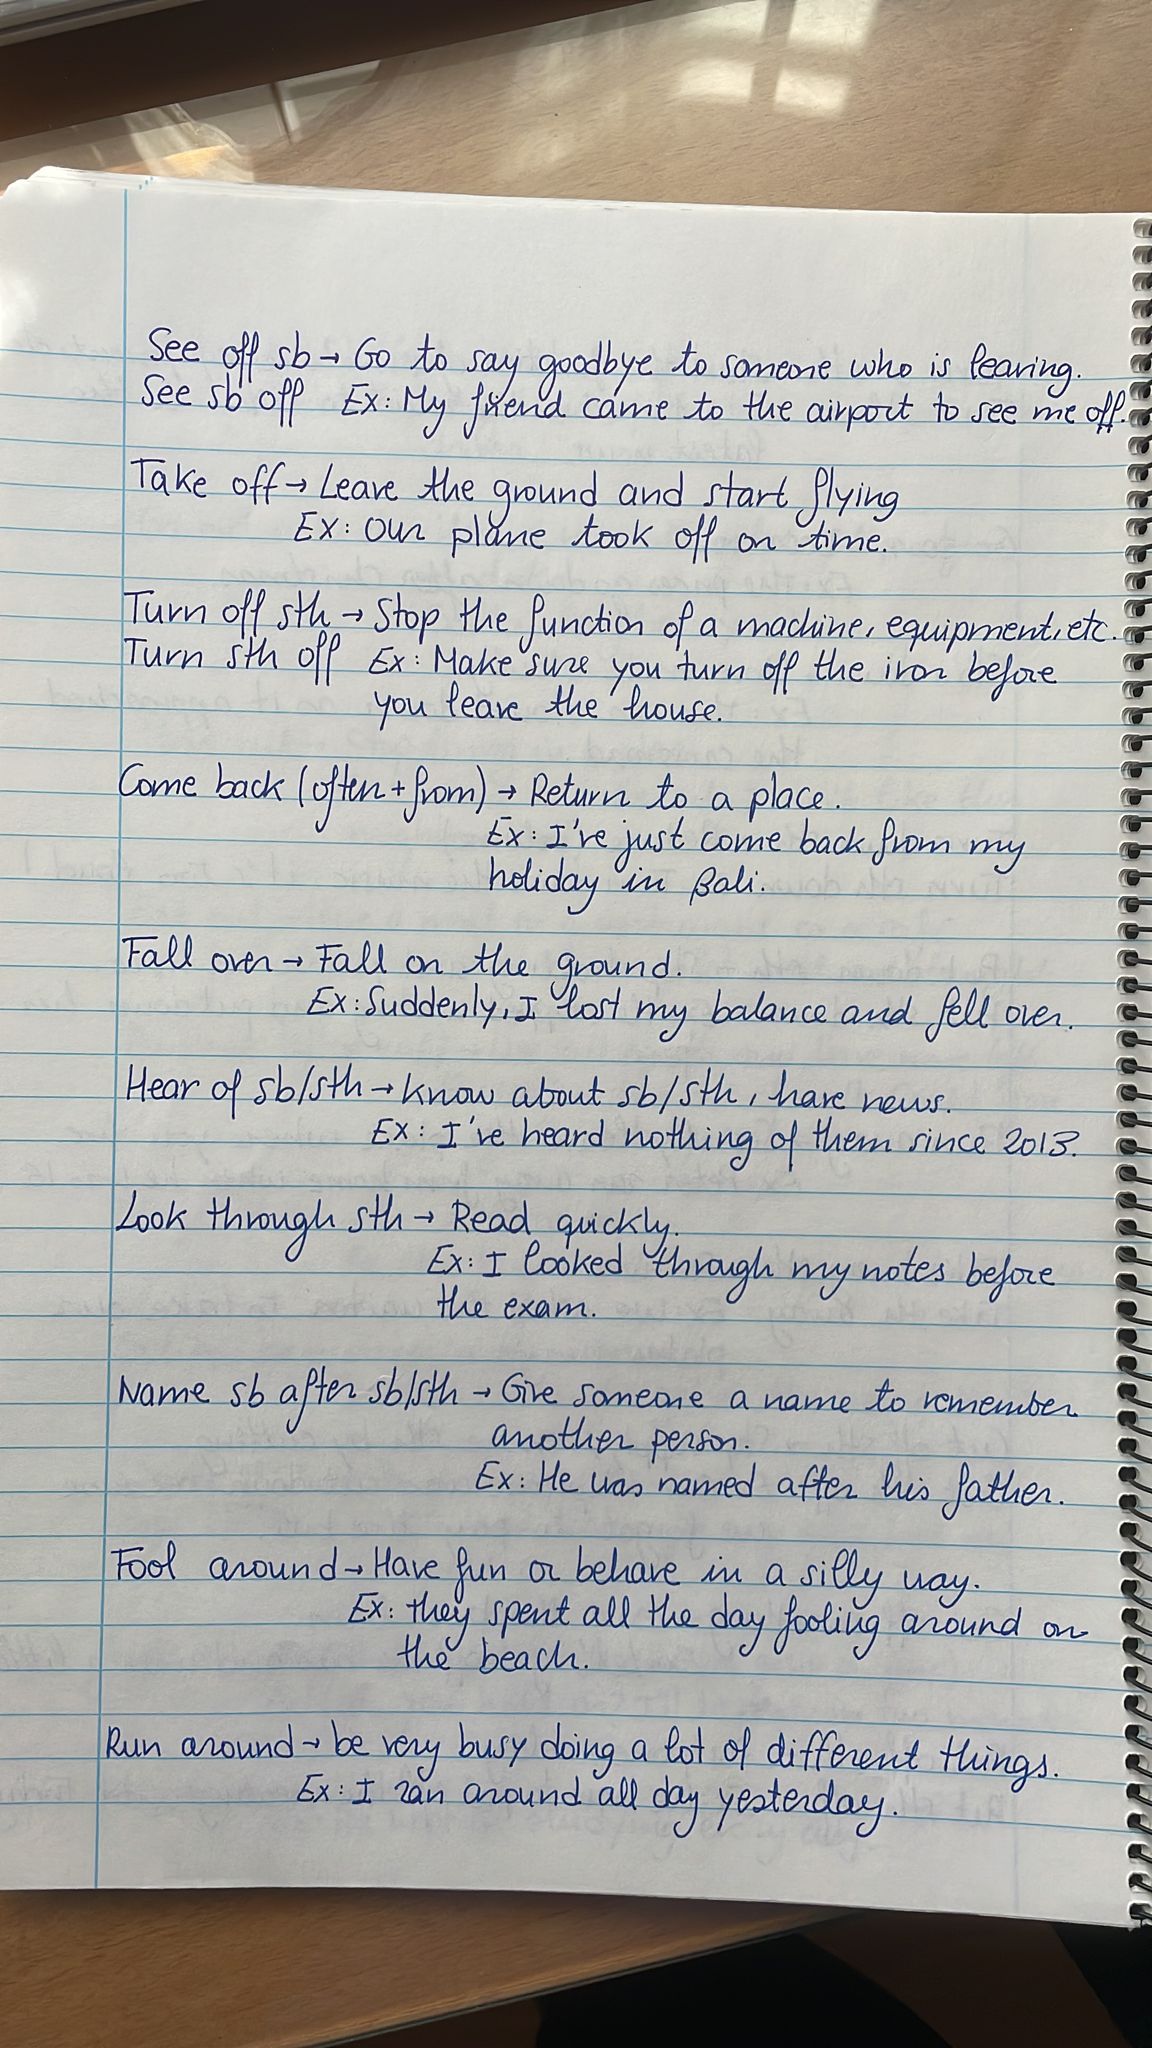 See off sb → Go to say goodbye to someone who is leaving.
See sb off Ex: My friend came to the airport to see me off.
Take off → Leave the ground and start flying
Ex: Our plane took off on time.
Turn off sth → Stop the function of a machine, equipment, etc.
Turn sth off Ex: Make sure you turn off the iron before
you leave the house.
Come back (often + from) → Return to a place.
Ex: I've just come back from my
holiday in Bali.
Fall over → Fall on the ground.
Ex: Suddenly, I lost my balance and fell over.
Hear of sb/sth → Know about sb/sth, have news.
Ex: I've heard nothing of them since 2013.
Look through sth → Read quickly.
Ex: I looked through my notes before
the exam.
Name sb after sb/sth → Give someone a name to remember
another person.
Ex: He was named after his father.
Fool around → Have fun or behave in a silly way.
Ex: they spent all the day fooling around on
the beach.
Run around → be very busy doing a lot of different things.
Ex: I ran around all day yesterday.